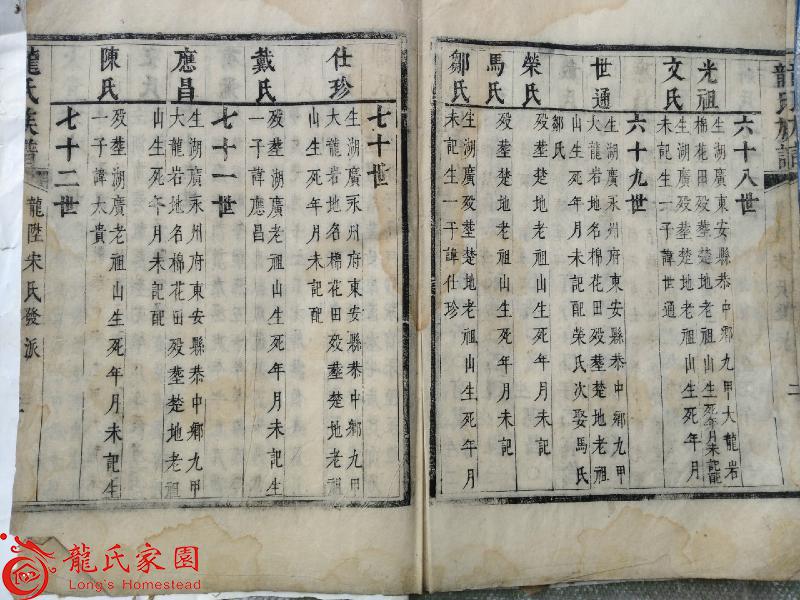 龍氏族譜
二
六十八世
光祖
生湖廣永州府東安縣恭中鄉九甲大龍岩
棉花田歿塟楚地老祖山生死年月未記配
文氏
生湖廣歿塟楚地老祖山生死年月
未記生一子諱世通
六十九世
世通
生湖廣永州府東安縣恭中鄉九甲
大龍岩地名棉花田歿塟楚地老祖
山生死年月未記配榮氏次娶馬氏
鄒氏
榮氏
歿塟楚地老祖山生死年月未記
馬氏
歿塟楚地老祖山生死年月未記
鄒氏
生湖廣歿塟楚地老祖山生死年月
未記生一子諱仕珍
七十世
仕珍
生湖廣永州府東安縣恭中鄉九甲
大龍岩地名棉花田歿塟楚地老祖
山生死年月未記配
戴氏
歿塟湖廣老祖山生死年月未記生
一子諱應昌
七十一世
應昌
生湖廣永州府東安縣恭中鄉九甲
大龍岩地名棉花田歿塟楚地老祖
山生死年月未記配
陳氏
歿塟湖廣老祖山生死年月未記生
一子諱太貴
七十二世
龍氏族譜
龍陞宋氏發派
三
龍氏家園
Long's Homestead